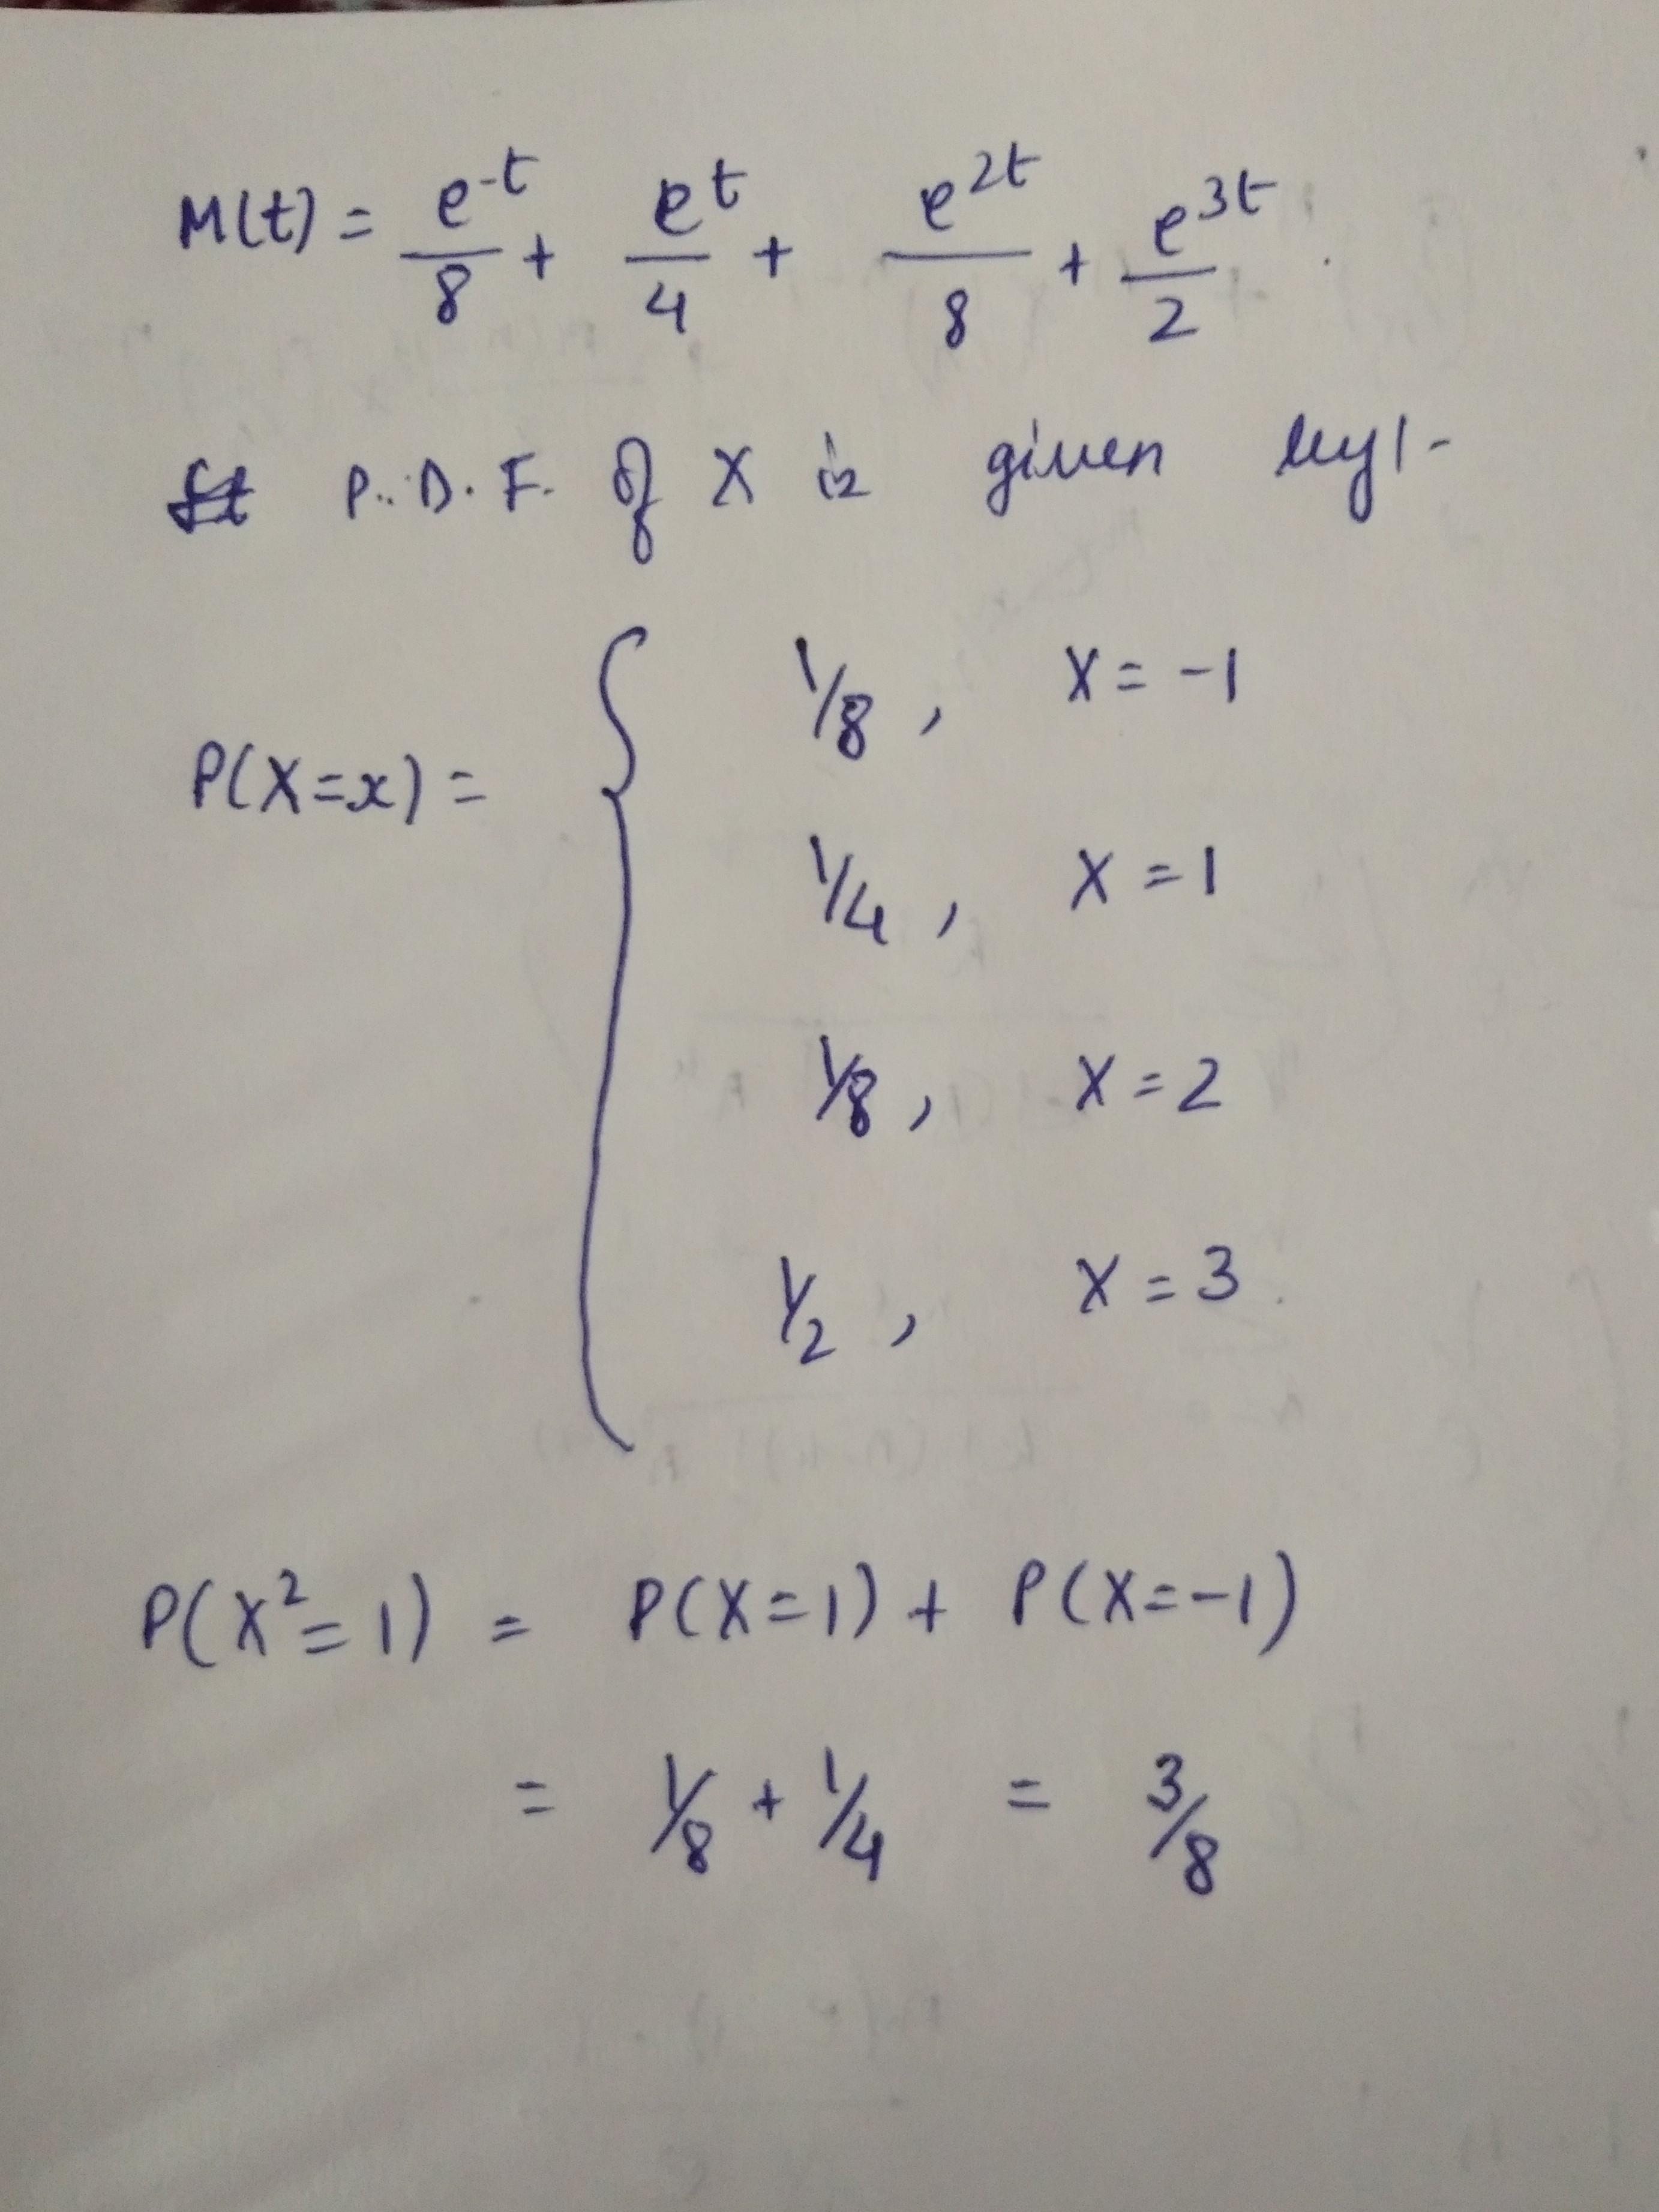 M(t) = e^-t/8 + e^t/4 + e^2t/8 + e^3t/2 .
P.D.F. of X is given by :-
P(X=x) = { 1/8 , X = -1
1/4 , X = 1
1/8 , X = 2
1/2 , X = 3 .
P(X²=1) = P(X=1) + P(X=-1)
= 1/8 + 1/4 = 3/8